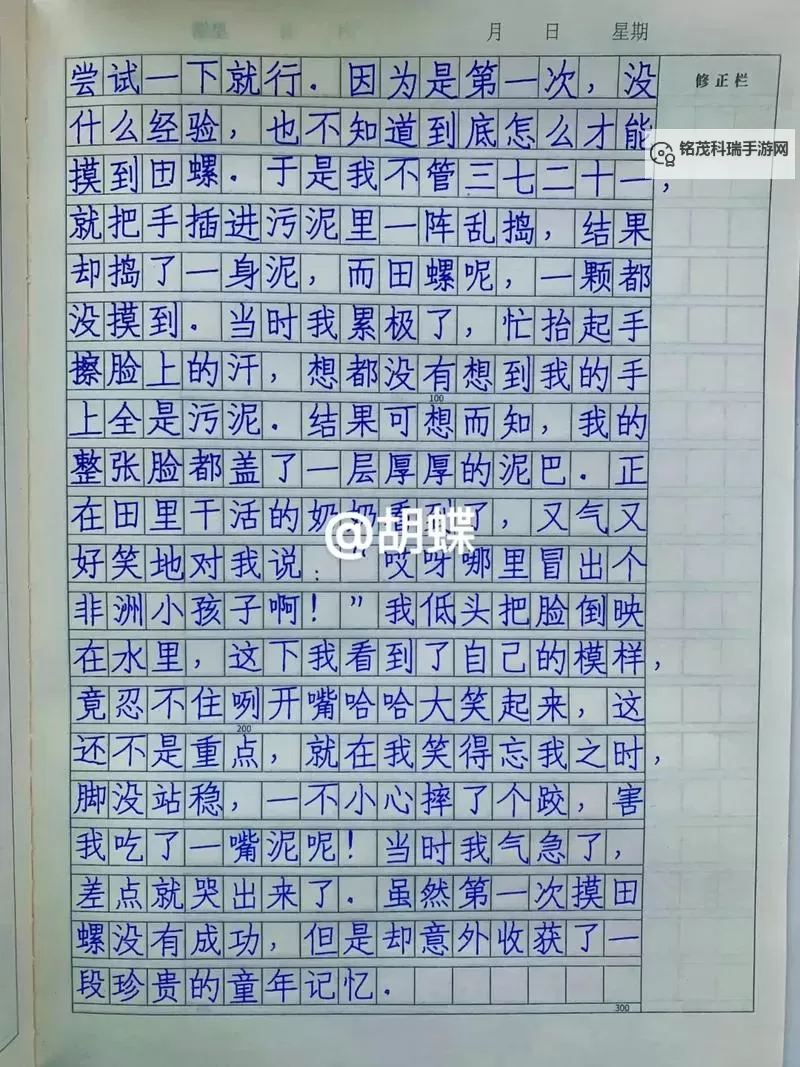 月 日 星期
修正栏
尝试一下就行．因为是第一次，没
什么经验，也不知道到底怎么才能
铭茂科瑞手游网
摸到田螺．于是我不管三七二十一，
就把手插进污泥里一阵乱捣，结果
却捣了一身泥，而田螺呢，一颗都
没摸到．当时我累极了，忙抬起手
擦脸上的汗，想都没有想到我的手
100
上全是污泥．结果可想而知，我的
整张脸都盖了一层厚厚的泥巴．正
在田里干活的奶奶看到了，又气又
@胡蝶
好笑地对我说：“哎呀哪里冒出个
非洲小孩子啊！”我低头把脸倒映
在水里，这下我看到了自己的模样，
竟忍不住咧开嘴哈哈大笑起来，这
200
还不是重点，就在我笑得忘我之时，
脚没站稳，一不小心摔了个跤，害
我吃了一嘴泥呢！当时我气急了，
差点就哭出来了．虽然第一次摸田
螺没有成功，但是却意外收获了一
段珍贵的童年记忆．
300